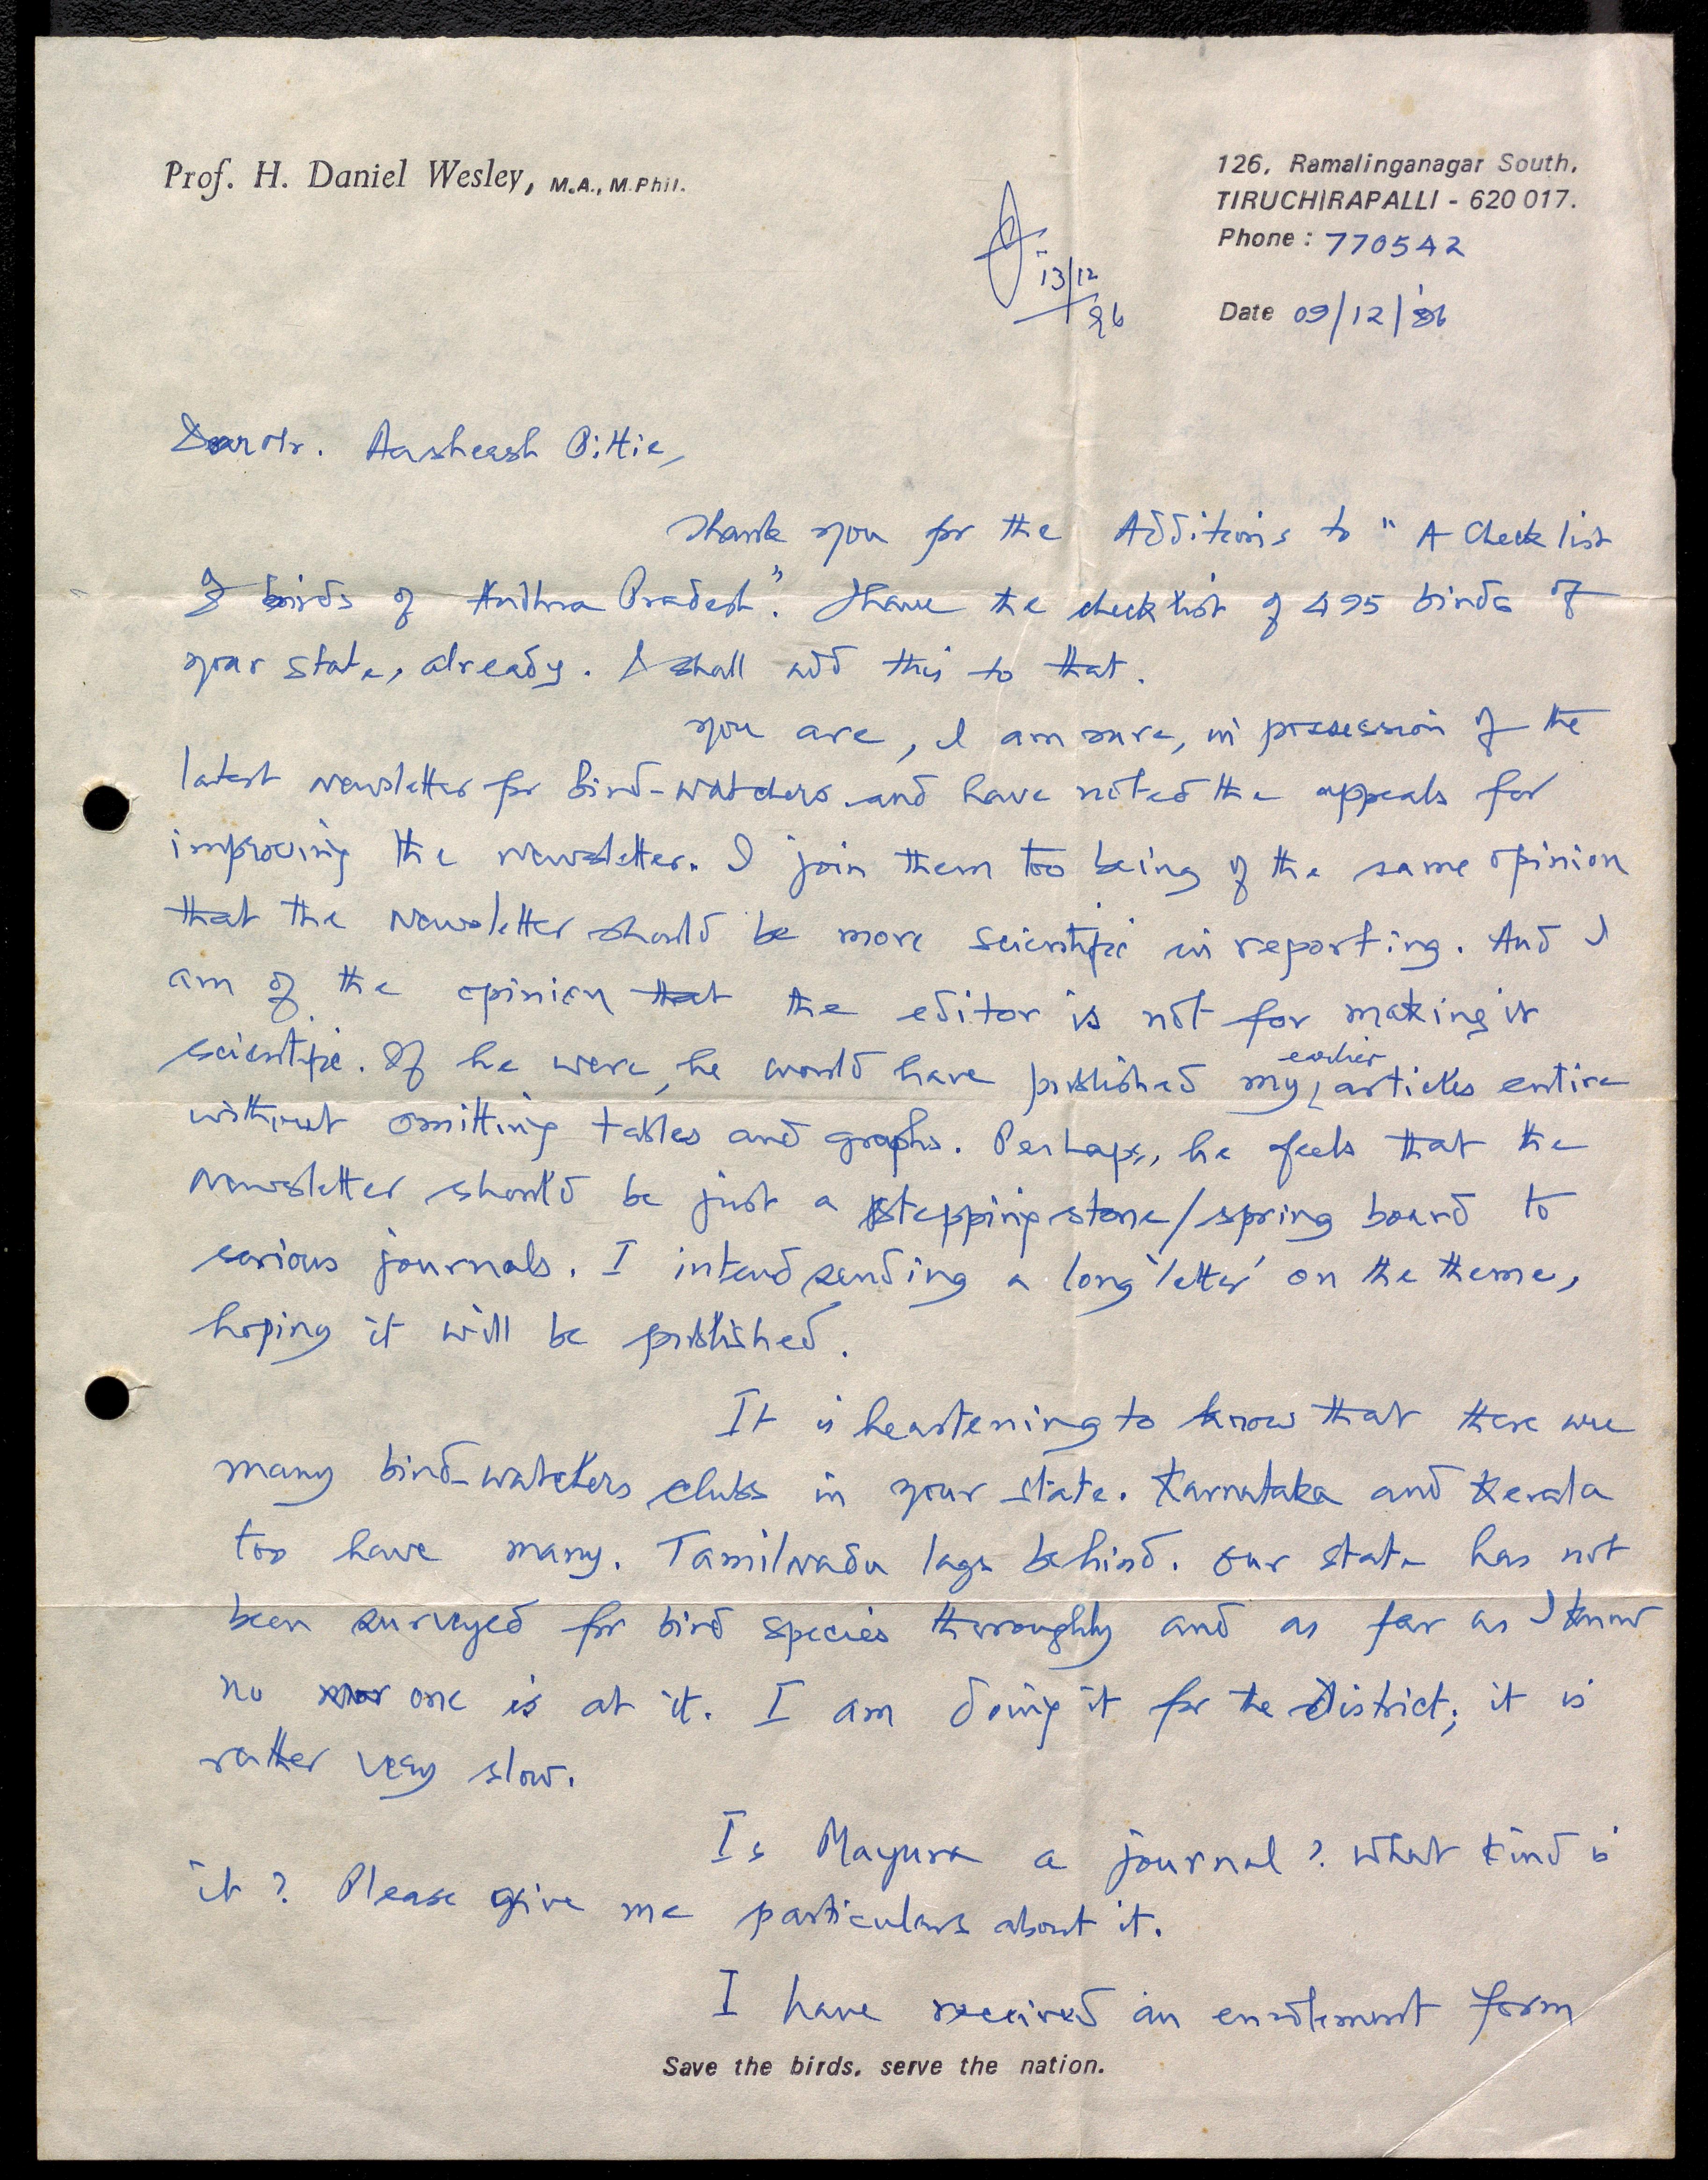 Prof. H. Daniel Wesley, M.A., M.Phil.
126, Ramalinganagar South,
TIRUCHIRAPALLI - 620 017.
Phone : 770542
13/12
96
Date 09/12/'96
Dear Mr. Aasheesh Pittie,
Thank you for the Additions to "A Checklist
of birds of Andhra Pradesh". I have the checklist of 495 birds of
your state, already. I shall add this to that.
You are, I am sure, in possession of the
latest Newsletter for Bird-watchers and have noted the appeals for
improving the Newsletter. I join them too being of the same opinion
that the Newsletter should be more scientific in reporting. And I
am of the opinion that the editor is not for making it
scientific. If he were, he would have published my earlier articles entire
without omitting tables and graphs. Perhaps, he feels that the
Newsletter should be just a stepping stone/spring board to
serious journals. I intend sending a long 'letter' on the theme,
hoping it will be published.
It is heartening to know that there are
many bird-watchers clubs in your state. Karnataka and Kerala
too have many. Tamilnadu lags behind. Our state has not
been surveyed for bird species thoroughly and as far as I know
no one is at it. I am doing it for the District; it is
rather very slow.
Is Mayura a journal? What kind is
it? Please give me particulars about it.
I have received an enrolement form
Save the birds, serve the nation.